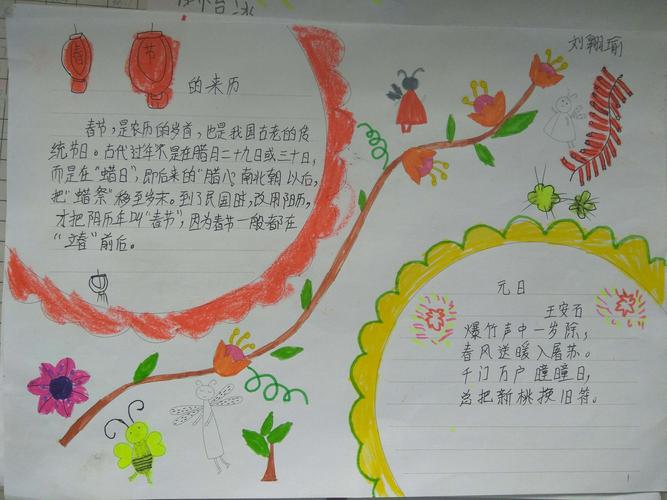 刘翔瑜
春节
的来历
春节,是农历的岁首,也是我国古老的传
统节日。古代过年不是在腊月二十九日或三十日,
而是在"蜡日",即后来的"腊八",南北朝以后,
把"蜡祭"移至岁末。到了民国时,改用阳历,
才把阴历年叫"春节",因为春节一般都在
"立春"前后。
元日
王安石
爆竹声中一岁除,
春风送暖入屠苏。
千门万户瞳瞳日,
总把新桃换旧符。